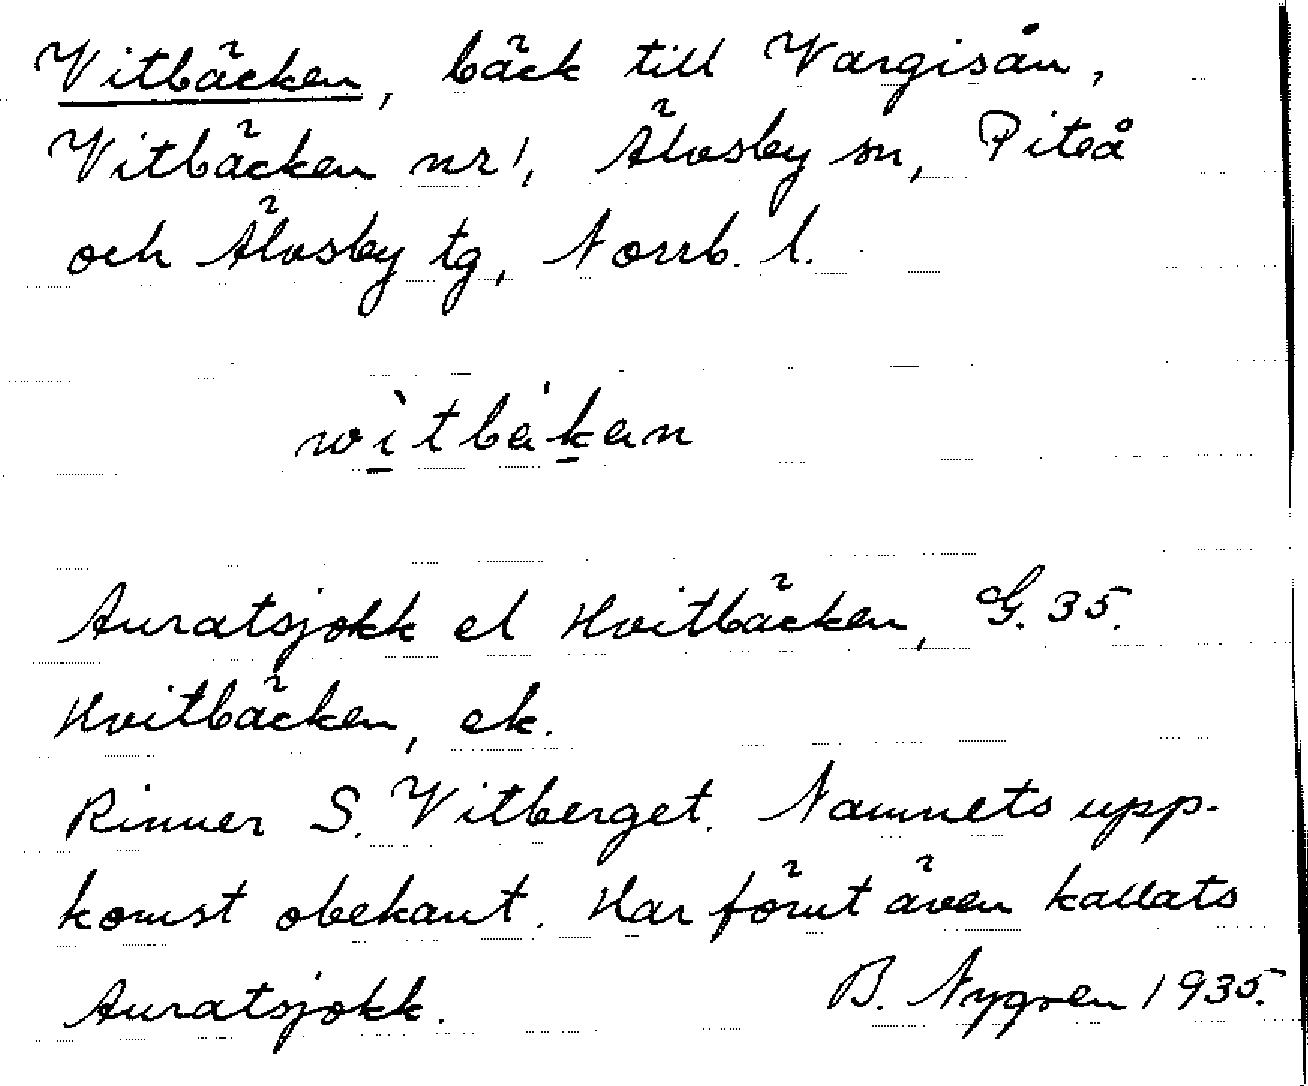 Vitbäcken, bäck till Vargisån,
Vitbäcken nr 1, Älvsby sn, Piteå
och Älvsby tg, Norrb. l.
wìtbäkan
Auratsjokk el Hvitbäcken, G. 35.
Hvitbäcken, ek.
Rinner S. Vitberget. Namnets upp-
komst obekant. Har förut även kallats
Auratsjokk. B. Nygren 1935.